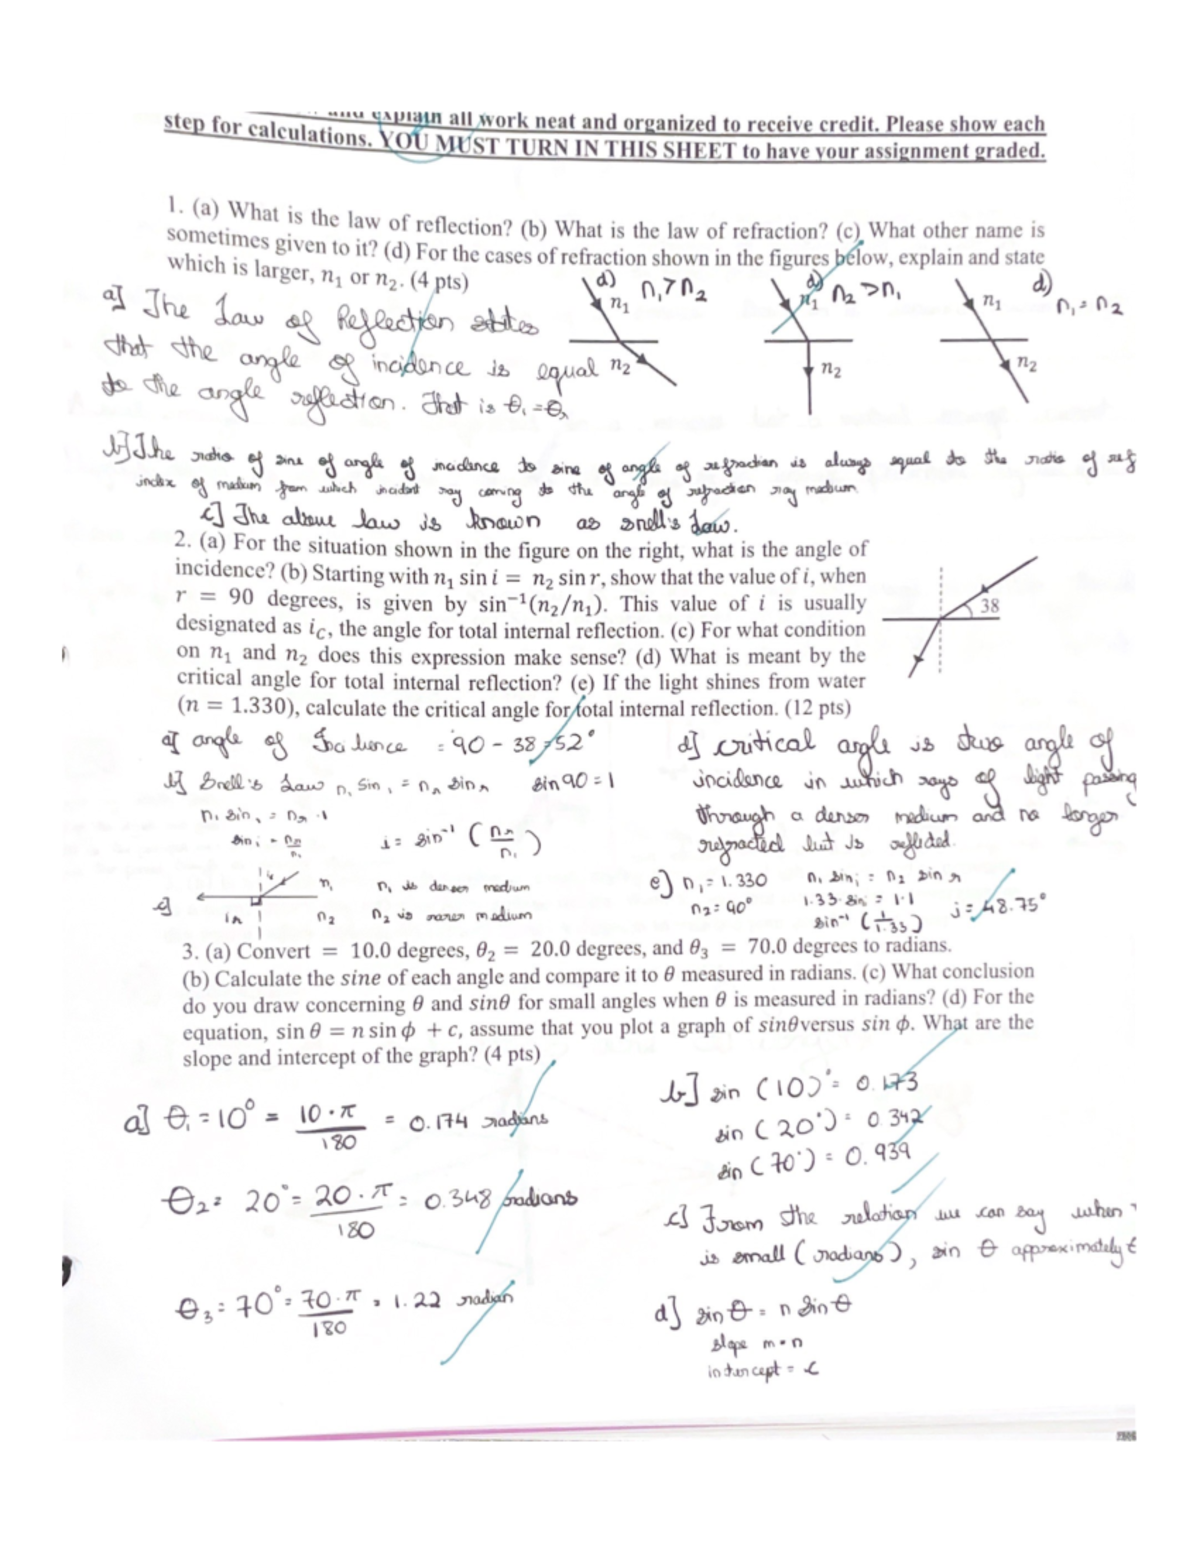 and explain all work neat and organized to receive credit. Please show each
step for calculations. YOU MUST TURN IN THIS SHEET to have your assignment graded.
1. (a) What is the law of reflection? (b) What is the law of refraction? (c) What other name is
sometimes given to it? (d) For the cases of refraction shown in the figures below, explain and state
which is larger, n₁ or n₂. (4 pts)
d) n₁ > n₂
n₁
n₂
d) n₂ > n₁
n₁
n₂
d) n₁ = n₂
n₁
n₂
a] The Law of Reflection states
that the angle of incidence is equal
to the angle reflection. That is θ₁ = θ₂
b] The ratio of sine of angle of incidence to sine of angle of refraction is always equal to the ratio of ref
index of medium from which incident ray coming to the angle of refraction ray medium
c] The above law is known as snell's Law.
2. (a) For the situation shown in the figure on the right, what is the angle of
incidence? (b) Starting with n₁ sin i = n₂ sin r, show that the value of i, when
r = 90 degrees, is given by sin⁻¹(n₂/n₁). This value of i is usually
designated as i_C, the angle for total internal reflection. (c) For what condition
on n₁ and n₂ does this expression make sense? (d) What is meant by the
critical angle for total internal reflection? (e) If the light shines from water
(n = 1.330), calculate the critical angle for total internal reflection. (12 pts)
38
a] angle of Incidence = 90 - 38 = 52°
b] Snell's Law
sin 90 = 1
n₁ is denser medium
n₂ is rarer medium
n₁
n₂
d] critical angle is the angle of
incidence in which rays of light passing
through a denser medium and no longer
refracted but is reflected.
e) n₁ = 1.330
n₂ = 90°
sin⁻¹ (1/1.33)
i = 48.75°
3. (a) Convert = 10.0 degrees, θ₂ = 20.0 degrees, and θ₃ = 70.0 degrees to radians.
(b) Calculate the sine of each angle and compare it to θ measured in radians. (c) What conclusion
do you draw concerning θ and sinθ for small angles when θ is measured in radians? (d) For the
equation, sin θ = n sin ϕ + c, assume that you plot a graph of sinθversus sin ϕ. What are the
slope and intercept of the graph? (4 pts)
a] θ₁ = 10° = 10·π/180 = 0.174 radians
θ₂ = 20° = 20·π/180 = 0.348 radians
θ₃ = 70° = 70·π/180 = 1.22 radian
b] sin (10)° = 0.173
sin (20°) = 0.342
sin (70°) = 0.939
c] From the relation we can say when
is small (radians), sin θ approximately
d] sin θ = n sin θ
slope m = n
intercept = c